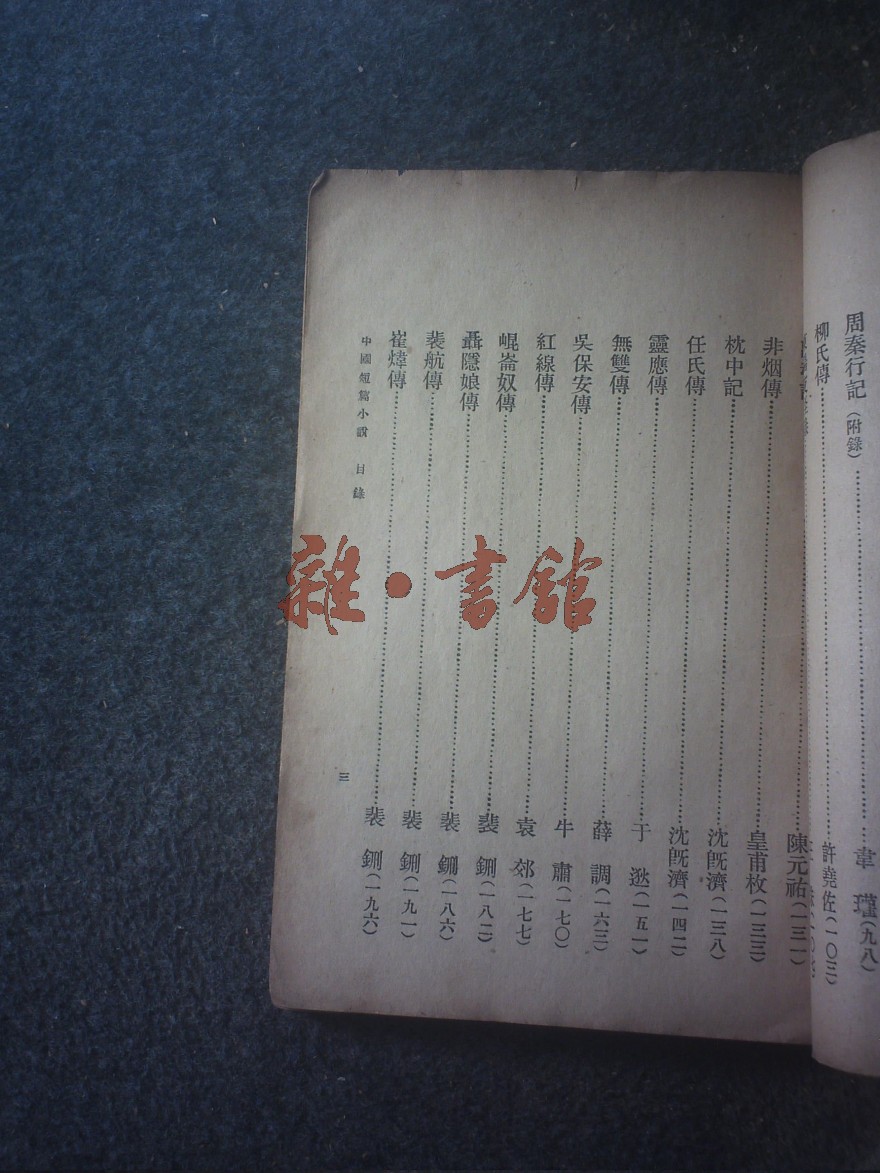 周秦行記(附錄)……韋瓘(九八)
柳氏傳……許堯佐(一〇三)
陳元祐(一三一)
非烟傳……皇甫枚(一三三)
枕中記……沈旣濟(一三八)
任氏傳……沈旣濟(一四二)
靈應傳……于逖(一五一)
無雙傳……薛調(一六三)
吳保安傳……牛肅(一七〇)
紅線傳……袁郊(一七七)
崐崙奴傳……裴鉶(一八二)
聶隱娘傳……裴鉶(一八六)
裴航傳……裴鉶(一九一)
崔煒傳……裴鉶(一九六)
中國短篇小說 目錄
三
雜·書館